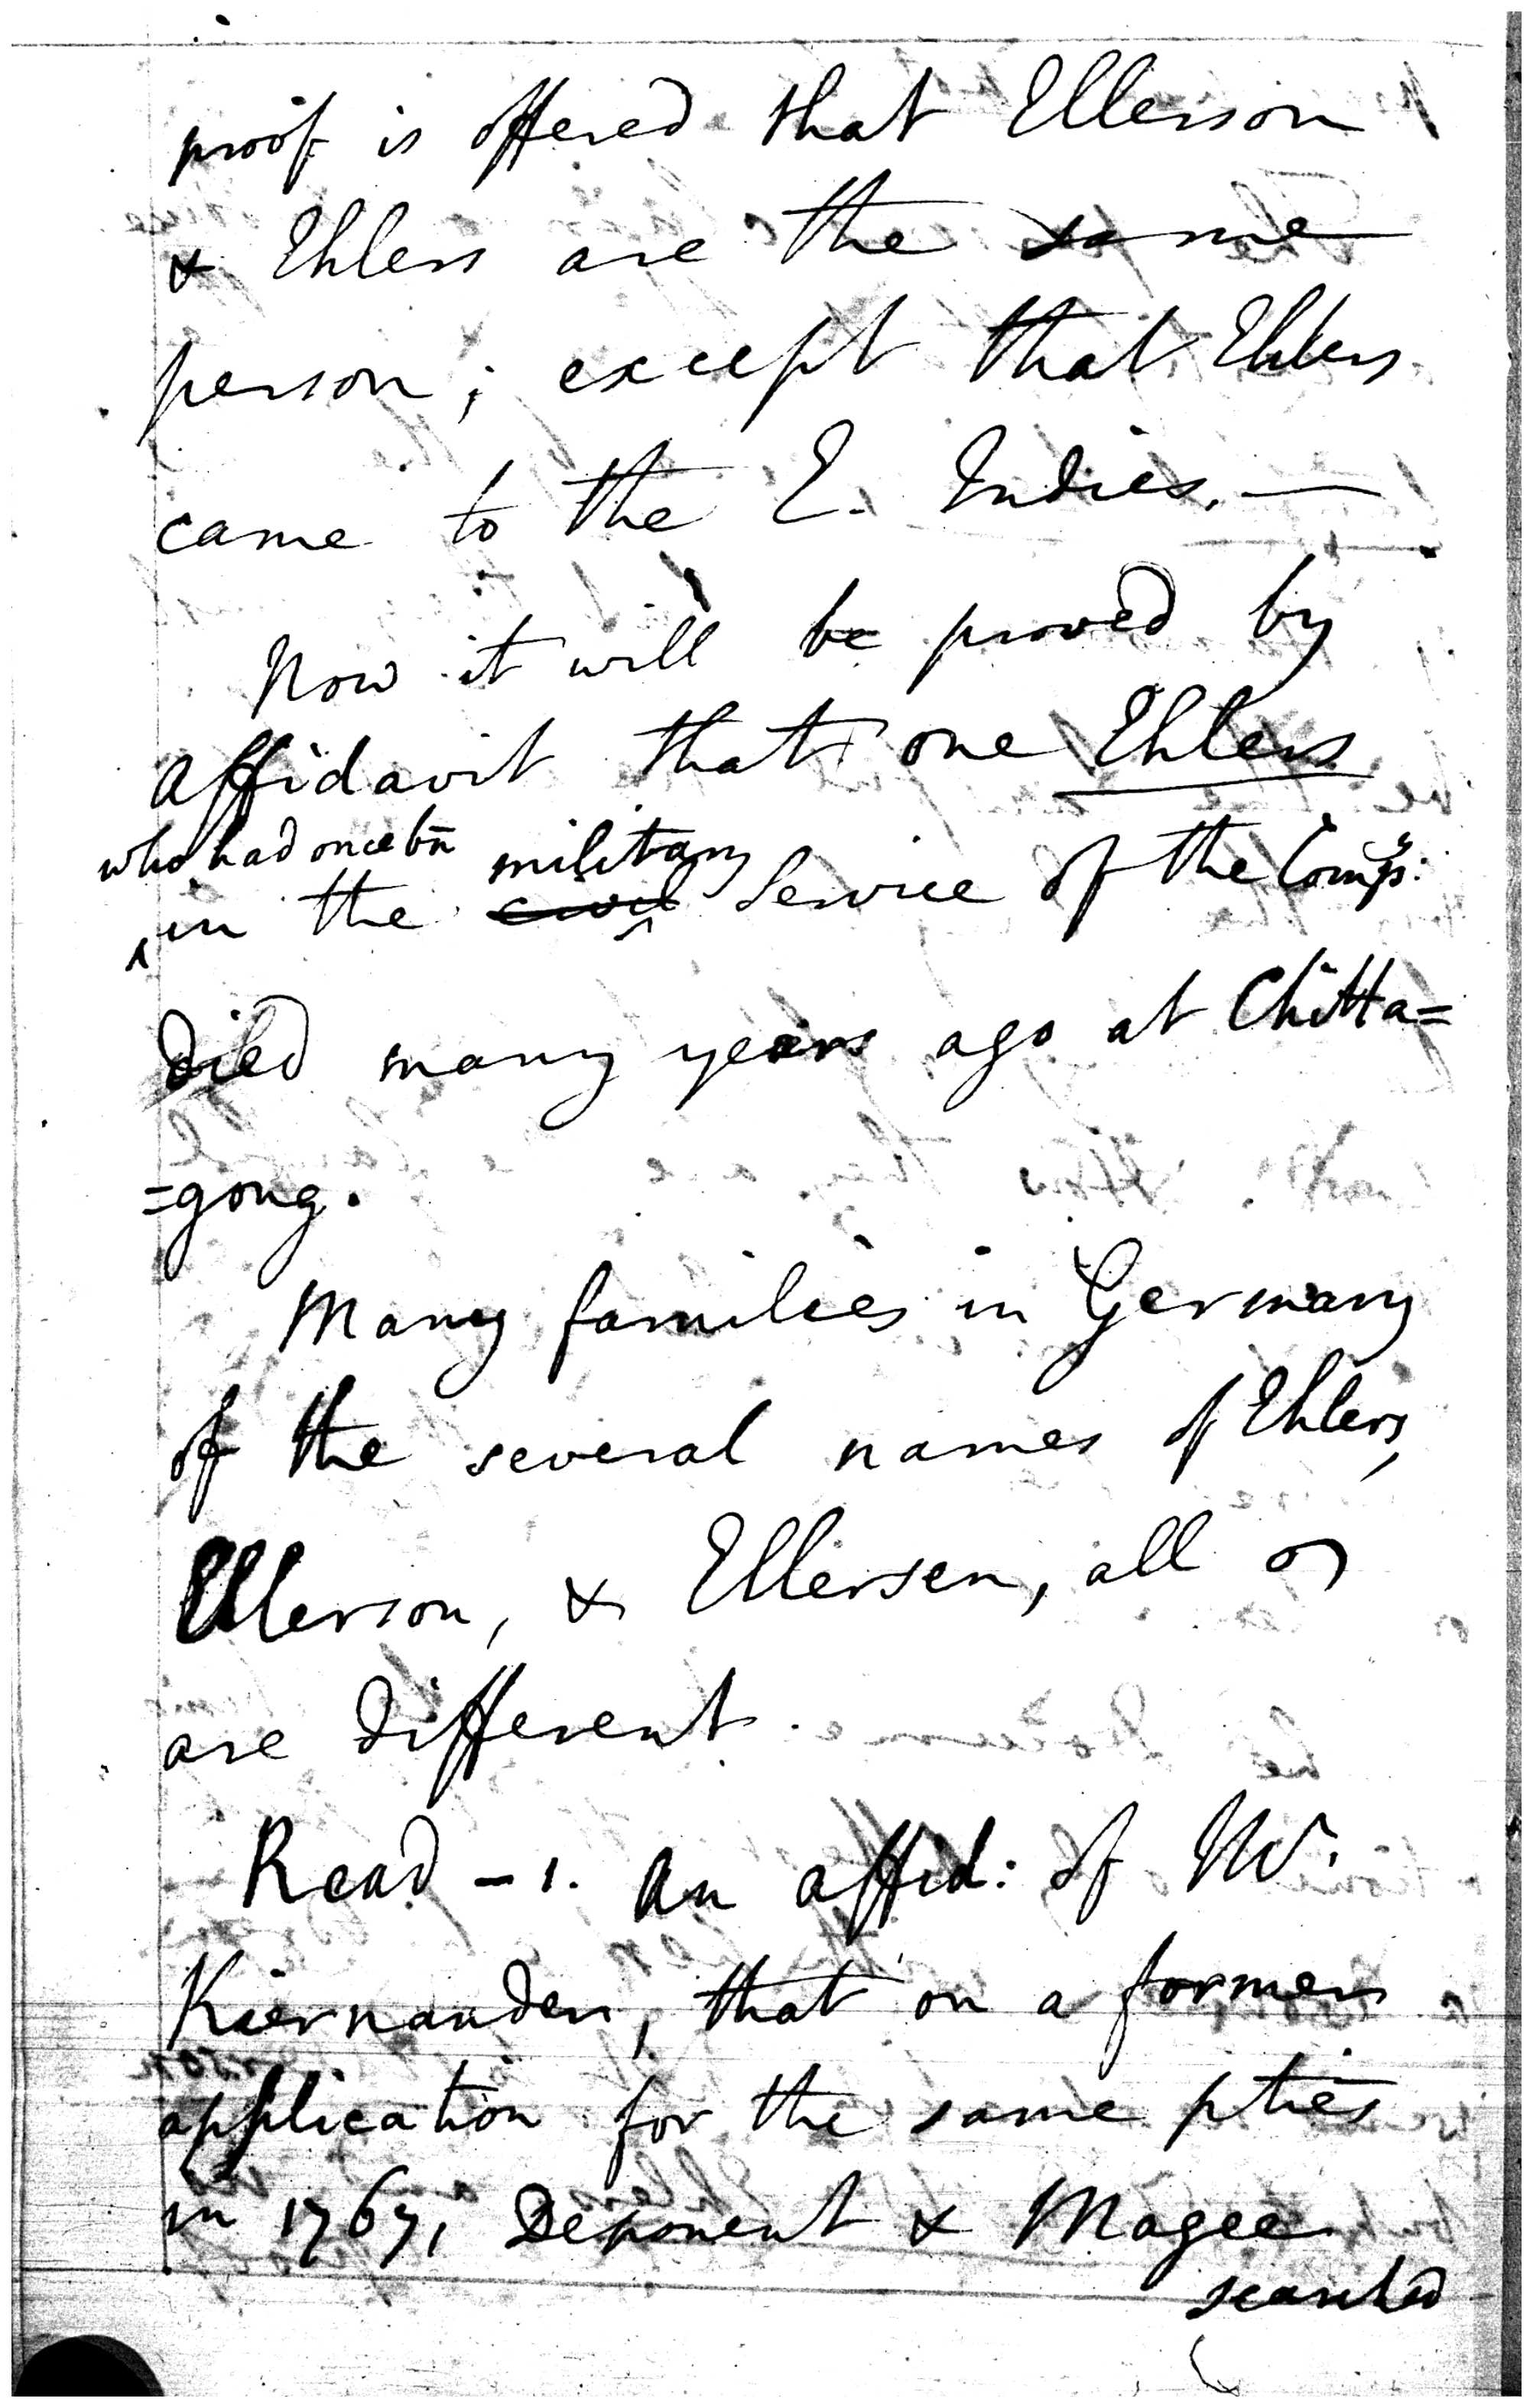 proof is offered that Ellerson
& Ehlers are the same
person; except that Ehlers
came to the E. Indies. —
Now it will be proved by
affidavit that one Ehlers
who had once bn military
in the civil Service of the Compy's:
died many years ago at Chitta=
=gong.
Many families in Germany
of the several names of Ehlers,
Ellerson, & Ellersen, all
are different.
Read - 1. An affid: of Mr.
Kiernander, that on a former
application for the same pties
in 1767, Deponent & Magee
searched